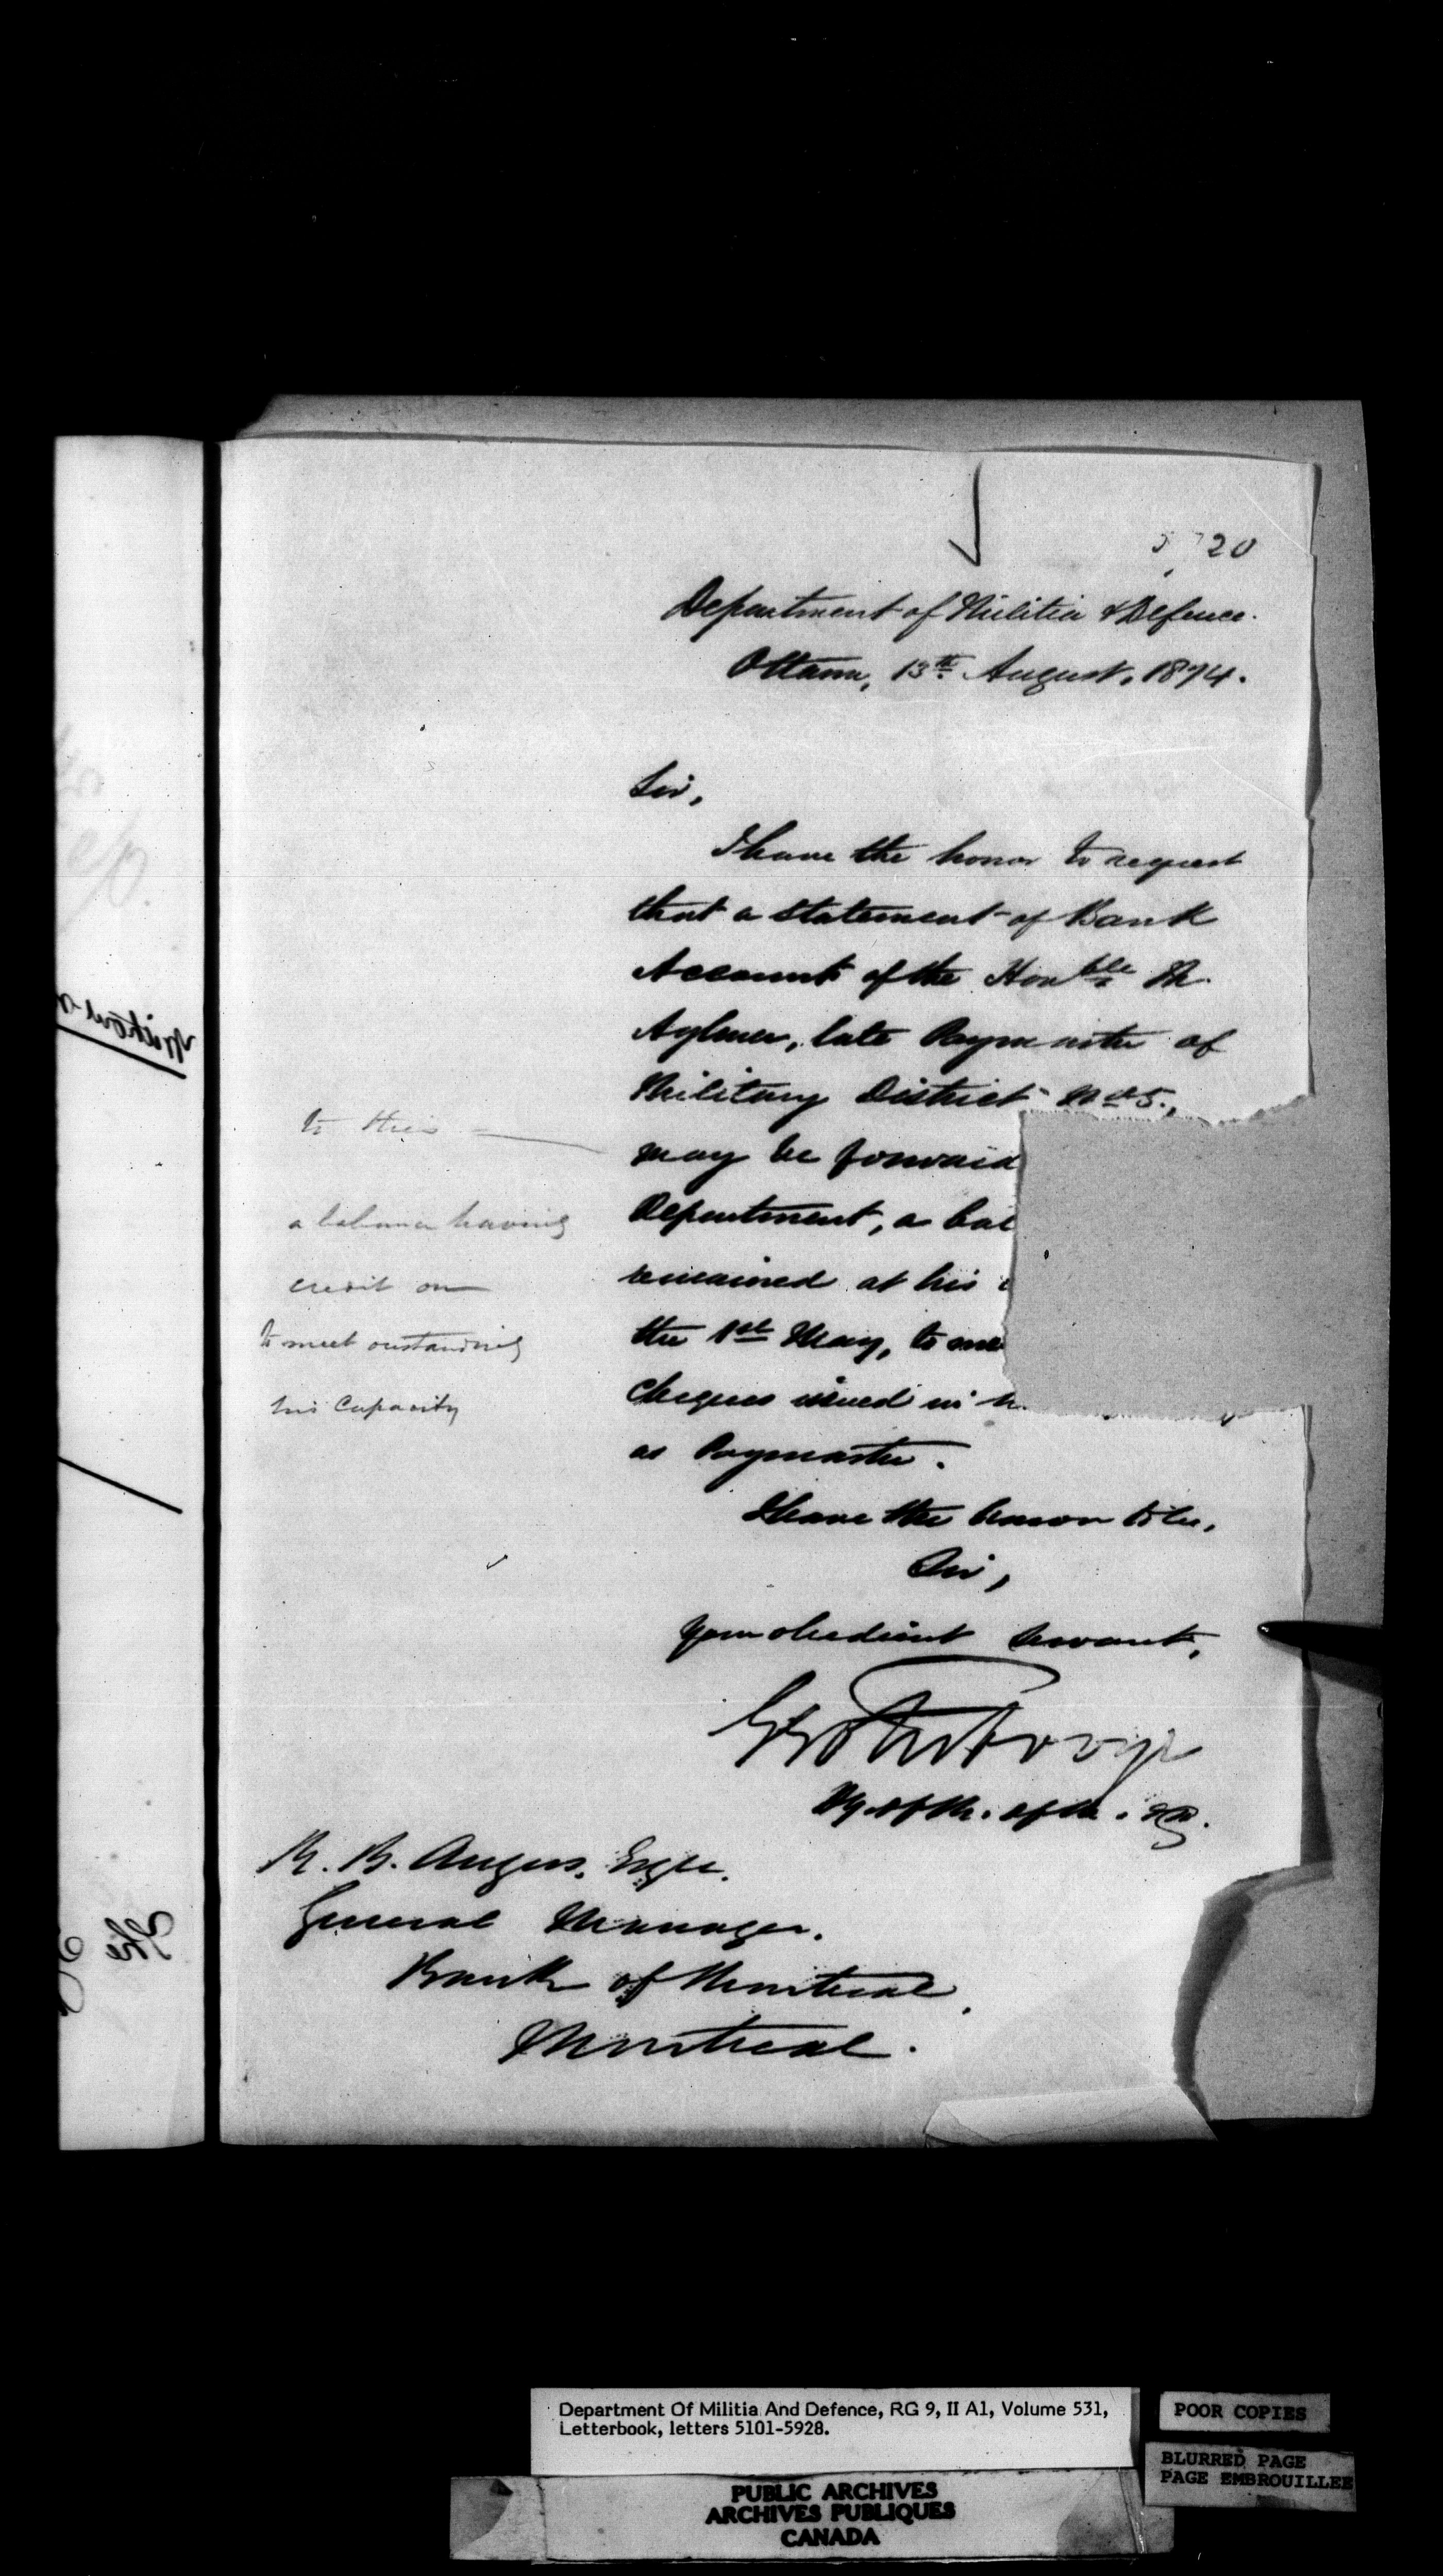 20
Department of Militia & Defence.
Ottawa, 13th August, 1874.
Sir,
I have the honor to request
that a statement of Bank
Account of the Honble M.
Aylmer, late Paymaster of
Military District No 5.,
may be forward
to this
Department, a bal
a balance having
remained at his
credit on
the 1st May, to me
to meet oustanding
Cheques issued in h
his Capacity
as Paymaster.
I have the honor to be,
Sir,
Your obedient servant,
R. B. Angus, Esqre.
General Manager.
Bank of Montreal,
Montreal.
The
Department Of Militia And Defence, RG 9, II A1, Volume 531,
Letterbook, letters 5101-5928.
POOR COPIES
BLURRED PAGE
PAGE EMBROUILLEE
PUBLIC ARCHIVES
ARCHIVES PUBLIQUES
CANADA